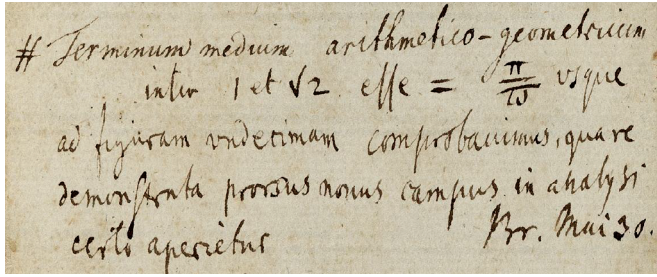 # Terminum medium arithmetico-geometricum
inter 1 et √2 esse = π/ϖ usque
ad figuram undecimam comprobavimus, quare
demonstrata prorsus novus campus in analysi
certo aperietur
Br. Mai 30.